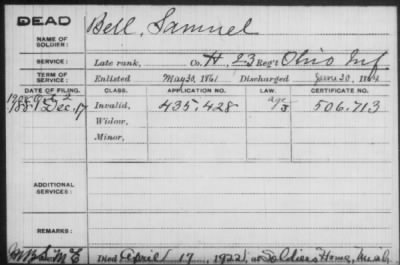 DEAD
NAME OF SOLDIER:
Bell, Samuel
SERVICE:
Late rank, Co. H, 23 Reg't Ohio Inf
TERM OF SERVICE:
Enlisted May 20, 1861 Discharged June 20, 1864
DATE OF FILING. CLASS. APPLICATION NO. LAW. CERTIFICATE NO.
Invalid, 435.428 506.713
Dec. 17
Widow,
Minor,
ADDITIONAL SERVICES:
REMARKS:
Died April 17, 1922, at Soldiers Home,